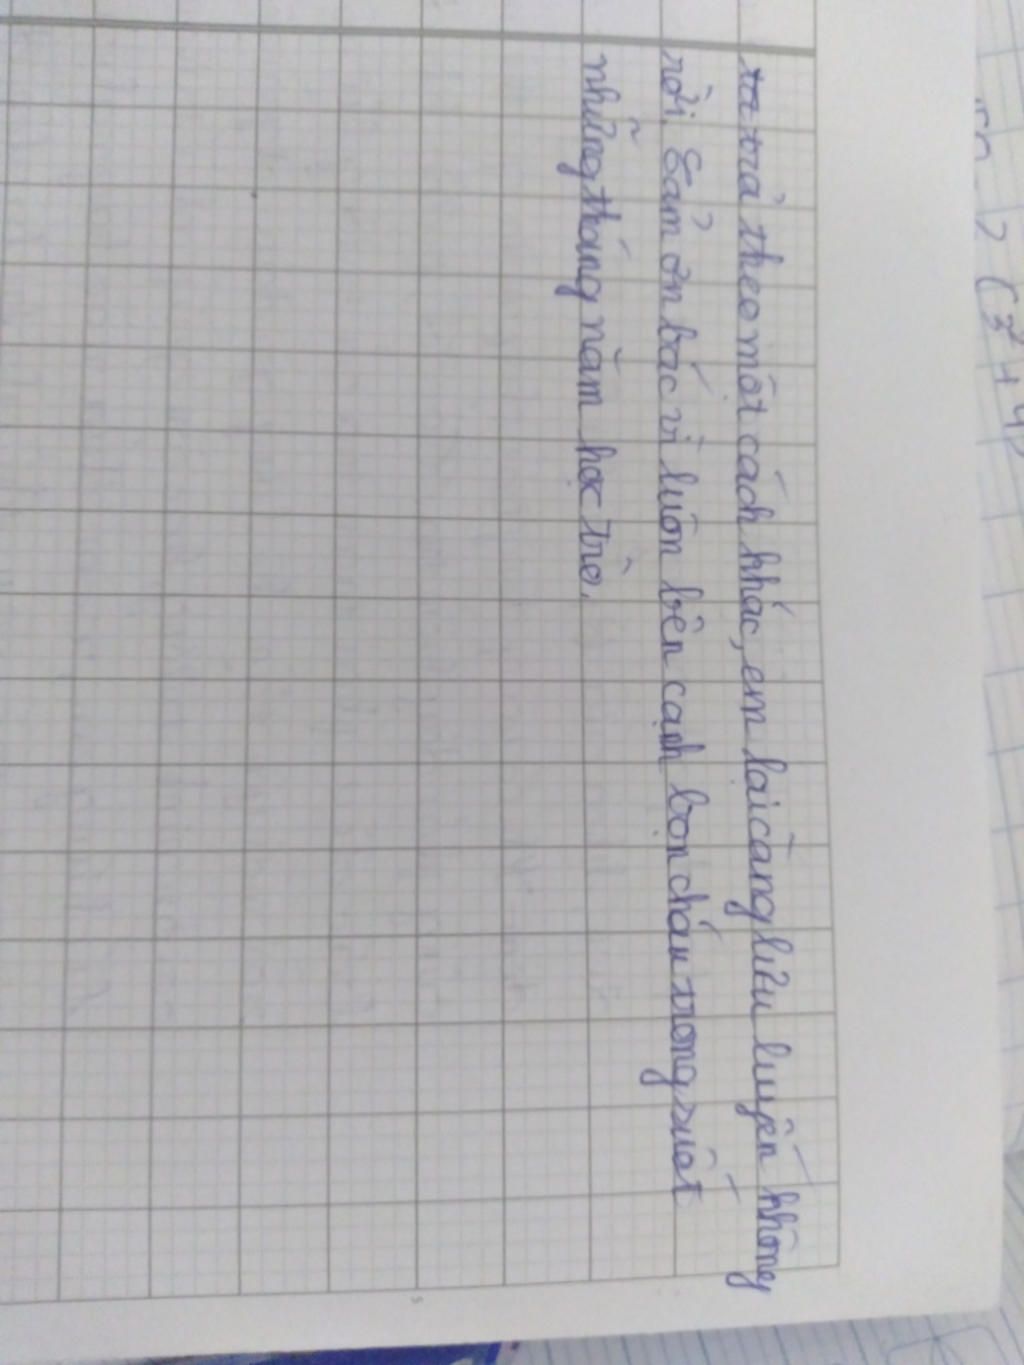 trả theo một cách khác, em lại càng lưu luyến không
rời. Cảm ơn bác vì luôn bên cạnh bọn cháu trong suốt
những tháng năm học trò.
2 (3² + 4)